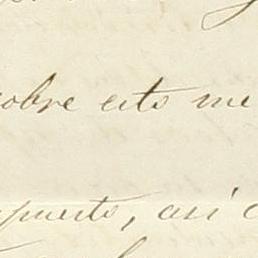 sobre esto me
puesto, asi